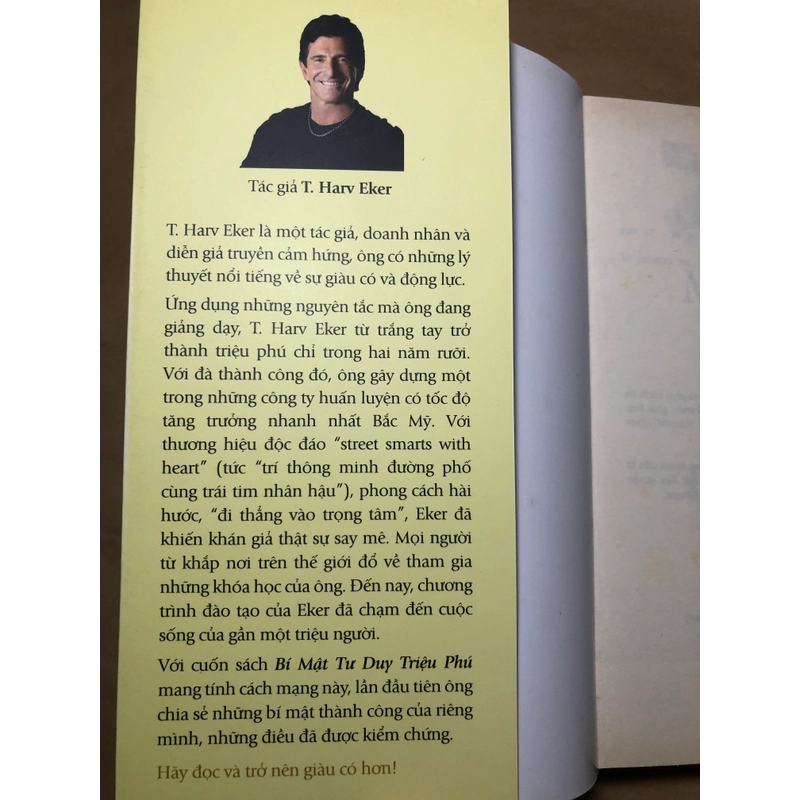 Tác giả T. Harv Eker
T. Harv Eker là một tác giả, doanh nhân và
diễn giả truyền cảm hứng, ông có những lý
thuyết nổi tiếng về sự giàu có và động lực.
Ứng dụng những nguyên tắc mà ông đang
giảng dạy, T. Harv Eker từ trắng tay trở
thành triệu phú chỉ trong hai năm rưỡi.
Với đà thành công đó, ông gây dựng một
trong những công ty huấn luyện có tốc độ
tăng trưởng nhanh nhất Bắc Mỹ. Với
thương hiệu độc đáo “street smarts with
heart” (tức “trí thông minh đường phố
cùng trái tim nhân hậu”), phong cách hài
hước, “đi thẳng vào trọng tâm”, Eker đã
khiến khán giả thật sự say mê. Mọi người
từ khắp nơi trên thế giới đổ về tham gia
những khóa học của ông. Đến nay, chương
trình đào tạo của Eker đã chạm đến cuộc
sống của gần một triệu người.
Với cuốn sách Bí Mật Tư Duy Triệu Phú
mang tính cách mạng này, lần đầu tiên ông
chia sẻ những bí mật thành công của riêng
mình, những điều đã được kiểm chứng.
Hãy đọc và trở nên giàu có hơn!